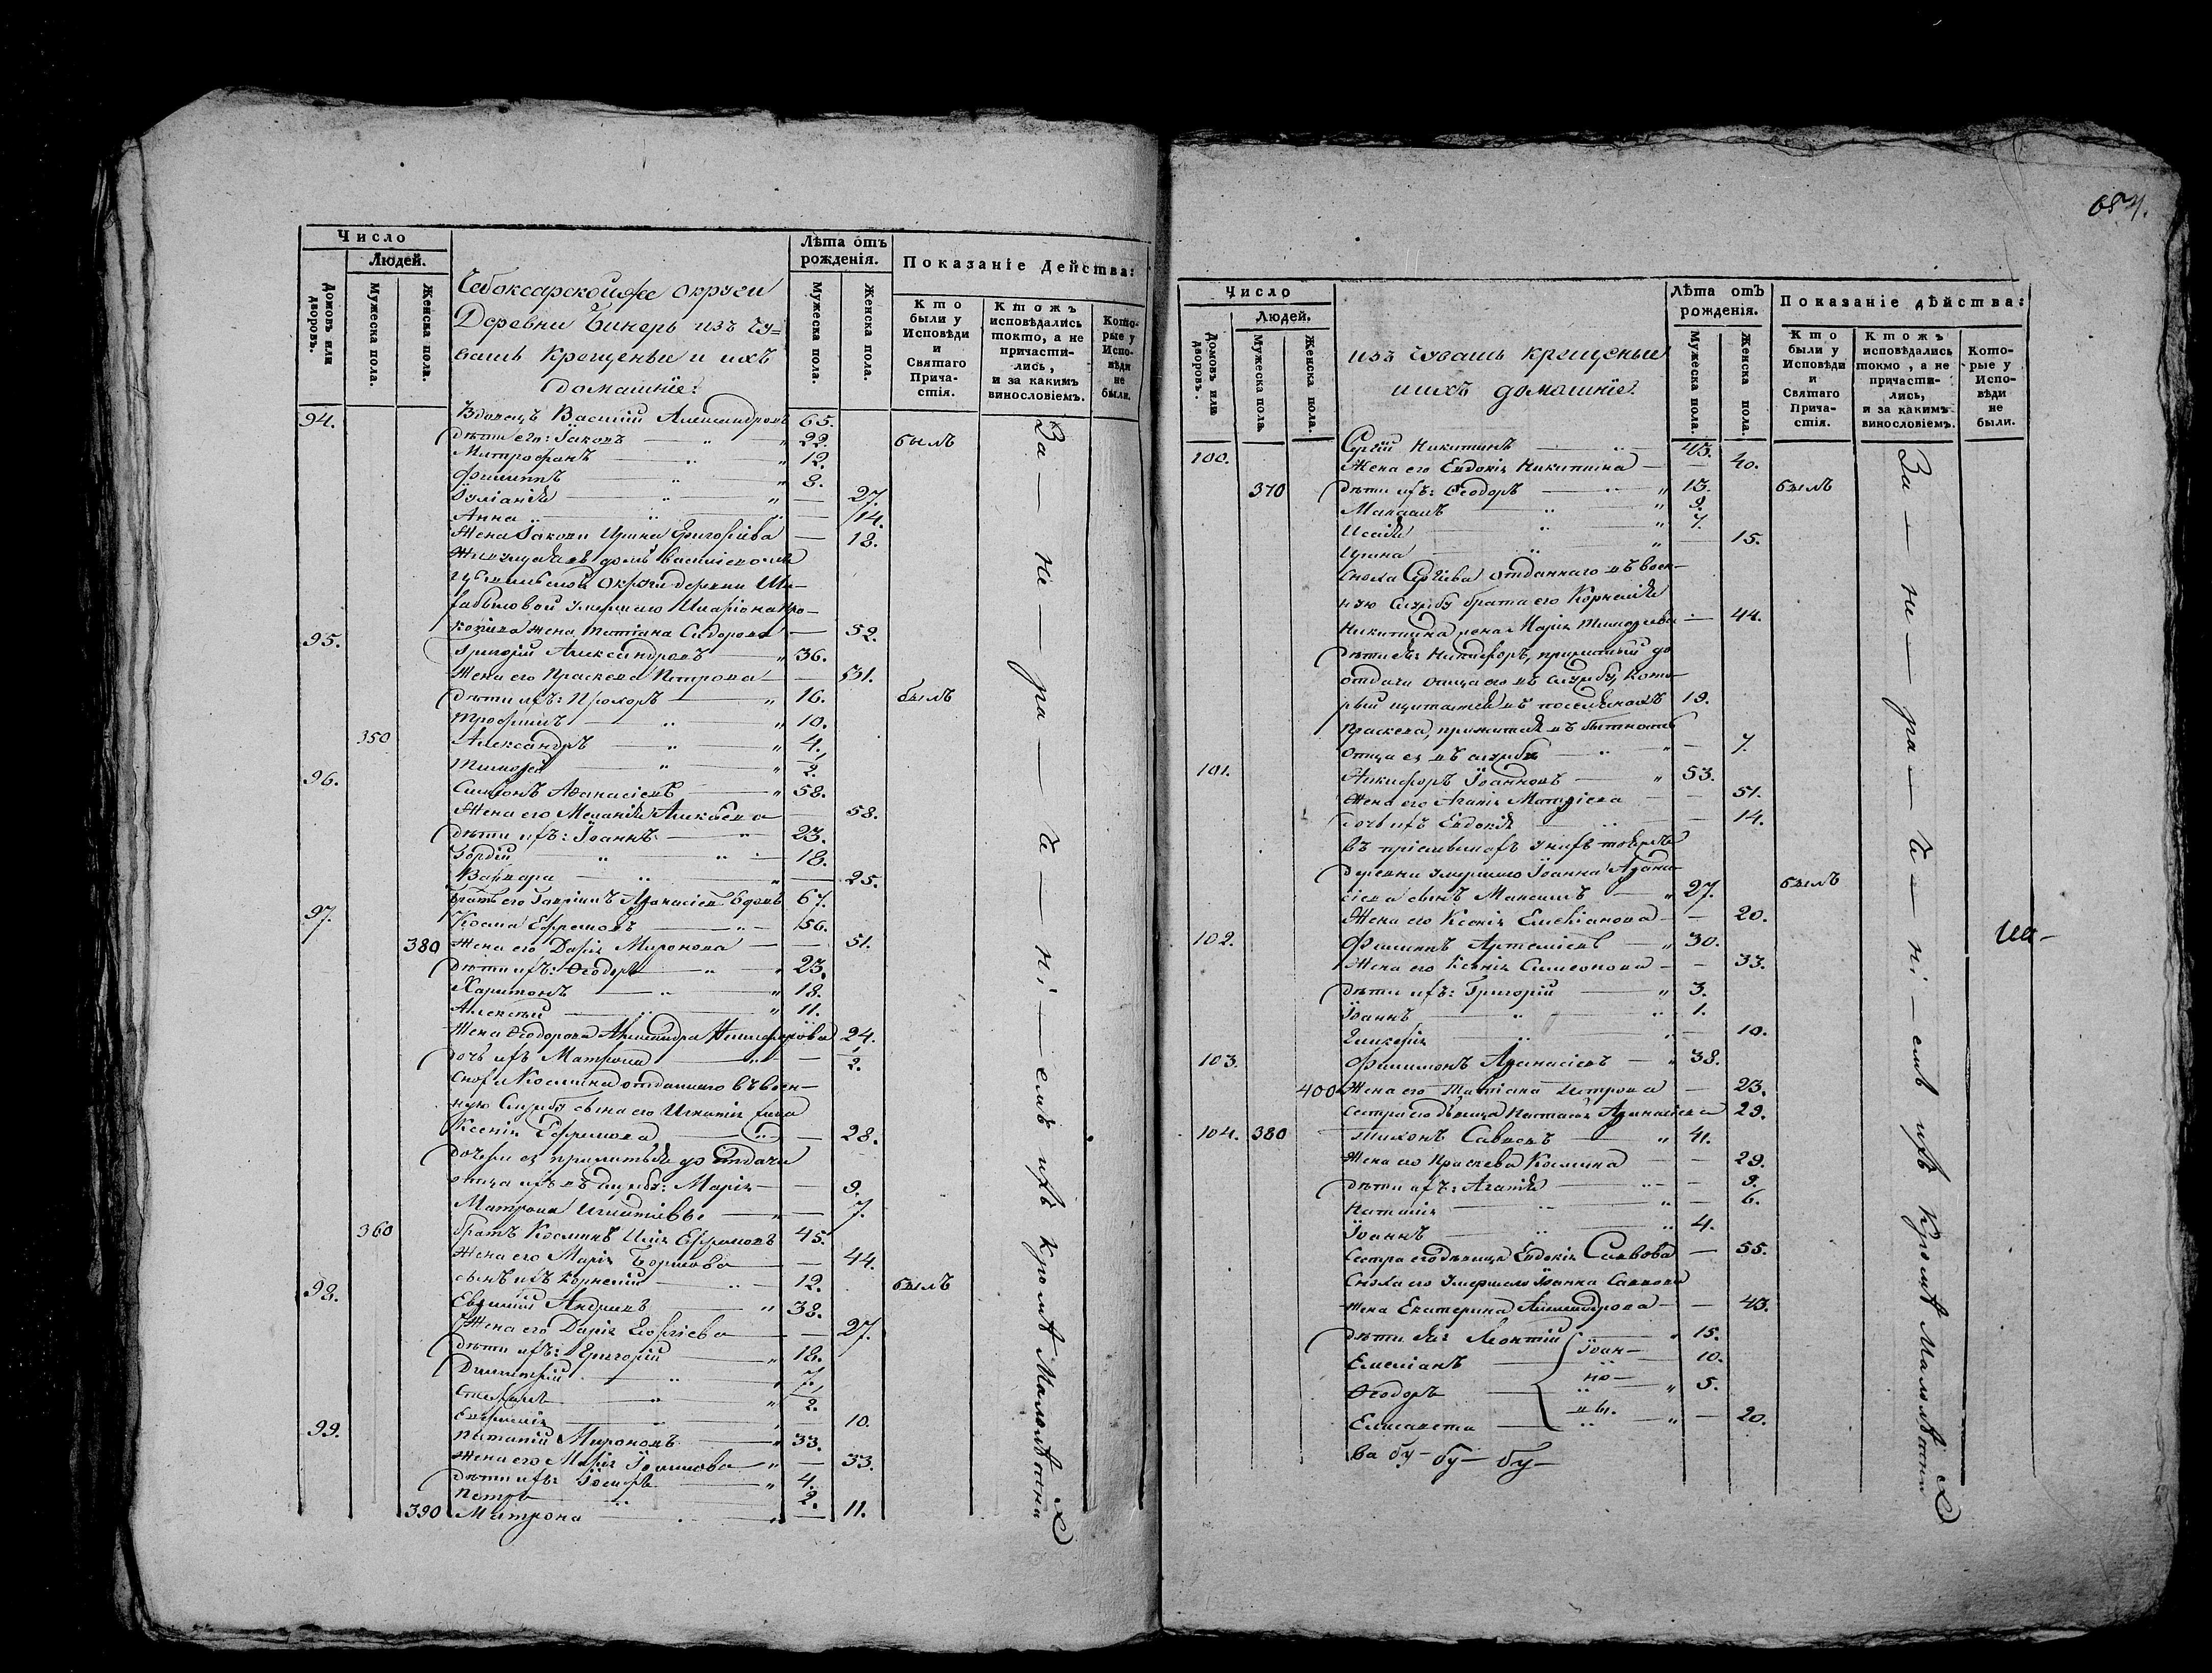 Число
Людей.
Домовъ или дворовъ.
Мужеска пола.
Женска пола.
Чебоксарской же округи
Деревни Бинеръ изъ чу=
вашь Крещеные и ихъ
домашніе:
Лѣта отъ рожденія.
Мужеска пола.
Женска пола.
Показаніе Действа:
Кто были у Исповѣди и Святаго Причастія.
Ктожъ исповѣдались токто, а не причастились, и за какимъ винословіемъ.
Которые у Исповѣди не были.
94. Вдовецъ Василій Александровъ 65.
дѣти его: Іаковъ 22. былъ
Митрофанъ 12.
Филиппъ 8.
Іуліанія 27.
Анна 14.
Жена Іакова Ирина Григоріева 18.
Живущая въ домѣ
округи деревни
умершаго Иларіона Про-
копіева жена Татіана Сидорова 52.
95. Григорій Александровъ 36.
Жена его Праскева Петрова 31.
дѣти ихъ: Прохоръ 16. былъ
Трофимъ 10.
350 Александръ 4.
Тимофей 2.
96. Симеонъ Афанасіевъ 58.
Жена его Меланія 58.
дѣти ихъ: Іоаннъ 23.
Гордій 18.
Варвара 25.
Братъ его Гавріилъ Афанасіевъ вдовъ 67.
97. Козма Ефремовъ 56.
380 Жена его Дарія Миронова 51.
дѣти ихъ: Ѳеодоръ 23.
Харитонъ 18.
Алексѣй 11.
Жена Ѳеодорова Александра Никифорова 24.
дочь ихъ Матрона 2.
Сноха Космина отданнаго въ воен-
ную Службу сына его Игнатія жена
Ксенія Ефимова 28.
дочери ея прижитыя до отдачи
отца ихъ въ службу: Марія 9.
Матрона Игнатіевы 7.
360 братъ Косминъ Илія Ефремовъ 45.
Жена его Марія 44.
сынъ ихъ Корнелій 12. былъ
98. Евфимій Андреевъ 38.
Жена его Дарія Георгіева 27.
дѣти ихъ: Григорій 18.
Димитрій 7.
Стефанъ 2.
Евфимія 10.
99. Мироновъ 33.
Жена его Марія 33.
дѣти ихъ: Іосифъ 4.
Петръ 2.
390 Матрона 11.
За — не — ра — че — ні — емъ ихъ кромѣ Малолѣтнихъ
684.
Число
Людей.
Домовъ или дворовъ.
Мужеска пола.
Женска пола.
изъ чувашь крещеные
и ихъ домашніе.
Лѣта отъ рожденія.
Мужеска пола.
Женска пола.
Показаніе дѣйства:
Кто были у Исповѣди и Святаго Причастія.
Ктожъ исповѣдались токмо, а не причастились, и за какимъ винословіемъ.
Которые у Исповѣди не были.
100. Сергій Никитинъ 45.
Жена его Евдокія Никитина 40.
370 дѣти ихъ: Ѳеодоръ 13. былъ
9.
Исаія 7.
Ирина 15.
Сноха Сергіева отданнаго въ воен-
ную Службу брата его Корнелія
Никитина жена Марія Тимофеева 44.
дѣти ея: Никифоръ, прижитый до
отдачи отца его въ службу, кото-
рый щитается въ 19.
Праскева, прижитая въ бытность
отца ея въ службѣ 7.
101. Никифоръ Іоанновъ 53.
Жена его Агапія Матфіева 51.
дочь ихъ Евдокія 14.
въ пріемышахъ у нихъ тояжъ
Деревни умершаго Іоанна Афана-
сіева сынъ Максимъ 27. былъ
Жена его Ксенія Емеліанова 20.
102. Филиппъ Артеміевъ 30.
Жена его Ксенія Симеонова 33.
дѣти ихъ: Григорій 3.
Іоаннъ 1.
Гликерія 10.
103. Филимонъ Афанасіевъ 38.
400 Жена его Татіана Петрова 23.
Сестра его дѣвица Афанасіева 29.
104. 380 Тихонъ Саввовъ 41.
Жена его Праскева Космина 29.
дѣти ихъ: Агапія 9.
Наталія 6.
Іоаннъ 4.
Сестра его дѣвица Евдокія Саввова 55.
Сноха его умершаго Іоанна Саввова
Жена Екатерина Александрова 43.
дѣти ея: Леонтій 15.
Емеліанъ 10.
Ѳеодоръ 5.
Елисавета 20.
Іоан-
но-
вы.
ва бу— бу— бу—
За — не — ра — че — ні — емъ ихъ Кромѣ Малолѣтнихъ